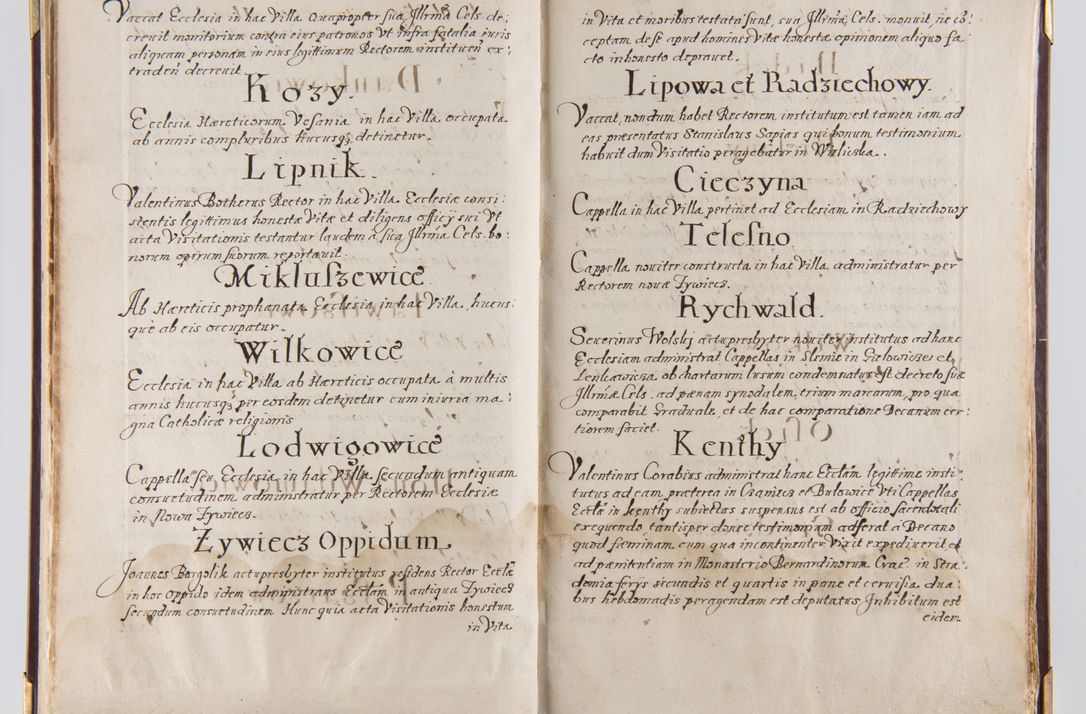 Vaccat Ecclesia in hac Villa. Quapropter sua Illrma Cels. de:
crevit monitorium contra eius patronos Vt infra fatalia iuris
aliquam personam in eius legittimum Rectorem instituen ex:
traden decrevit.
Kozy.
Ecclesia Hæreticorum Vesania in hac Villa occupata
ab annis compluribus hucusq; detinetur.
Lipnik.
Valentinus Botherus Rector in hac Villa Ecclesiæ consi:
stentis legittimus honestæ Vitæ et diligens officij sui Vt
acta Visitationis testantur laudem à sua Illrma Cels. bo:
norum operum suorum reportavit.
Mikluszewice
Ab Hæreticis prophanata Ecclesia in hac Villa, hucus:
què ab eis occupatur.
Wilkowice
Ecclesia in hac Villa ab Hæreticis occupata à multis
annis hucusq; per eosdem detinetur cum iniuria ma:
gna Catholicæ religionis
Lodwigowice
Cappella seu Ecclesia in hac Villa secundum antiquam
consuetudinem administratur per Rectorem Ecclesiæ
in Nowa Zywiecz.
Zywiecz Oppidum
Joannes Bargolik actupresbyter institutus residens Rector Ecclæ
in hoc Oppido idem administrans Ecclam in antiqua Zywiecz
secundum consuetudinem Hunc quia acta Visitationis honestum
in Vita
in Vita et moribus testata sunt, sua Illrma Cels. monuit, ne cō:
ceptam de se apud homines Vitæ honestæ opinionem aliquo fa:
cto inhonesto depravet.
Lipowa et Radziechowy.
Vaccat, nondum habet Rectorem institutum est tamen iam ad
eas præsentatus Stanislaus Sapias qui bonum testimonium
habuit dum Visitatio peragebatur in Wieliczka.
Cieczyna
Cappella in hac Villa pertinet ad Ecclesiam in Radziechowy
Telesno
Cappella noviter constructa in hac Villa administratur per
Rectorem novæ Zywiecz.
Rychwald.
Severinus Wolskj actupresbyter noviter institutus ad hanc
Ecclesiam administrat Cappellas in Slemie in Gielowicze et
Lenkawicza ob chartarum lusum condemnatus est decreto suæ
Illrmæ Cels. ad pænam synodalem trium marcarum, pro qua
comparabit Graduale, et de hac comparatione Decanum cer:
tiorem faciet.
Kenthy
Valentinus Corabius administrat hanc Ecclam legittime insti:
tutus ad eam præterea in Czaniecz et Bulowice Vti Cappellas
Ecclæ in Kenthy subiectas suspensus est ab officio sacerdotali
exequendo tantisper donec testimonium adferat à Decano
quod fæminam cum qua incontinenter Vixit expediverit et
ad pænitentiam in Monasterio Bernardinorum Crac. in Stra:
domia ferys secundis et quartis in pane et cervisia dua:
bus hebdomadis peragendam est deputatus Inhibitum est
eidem